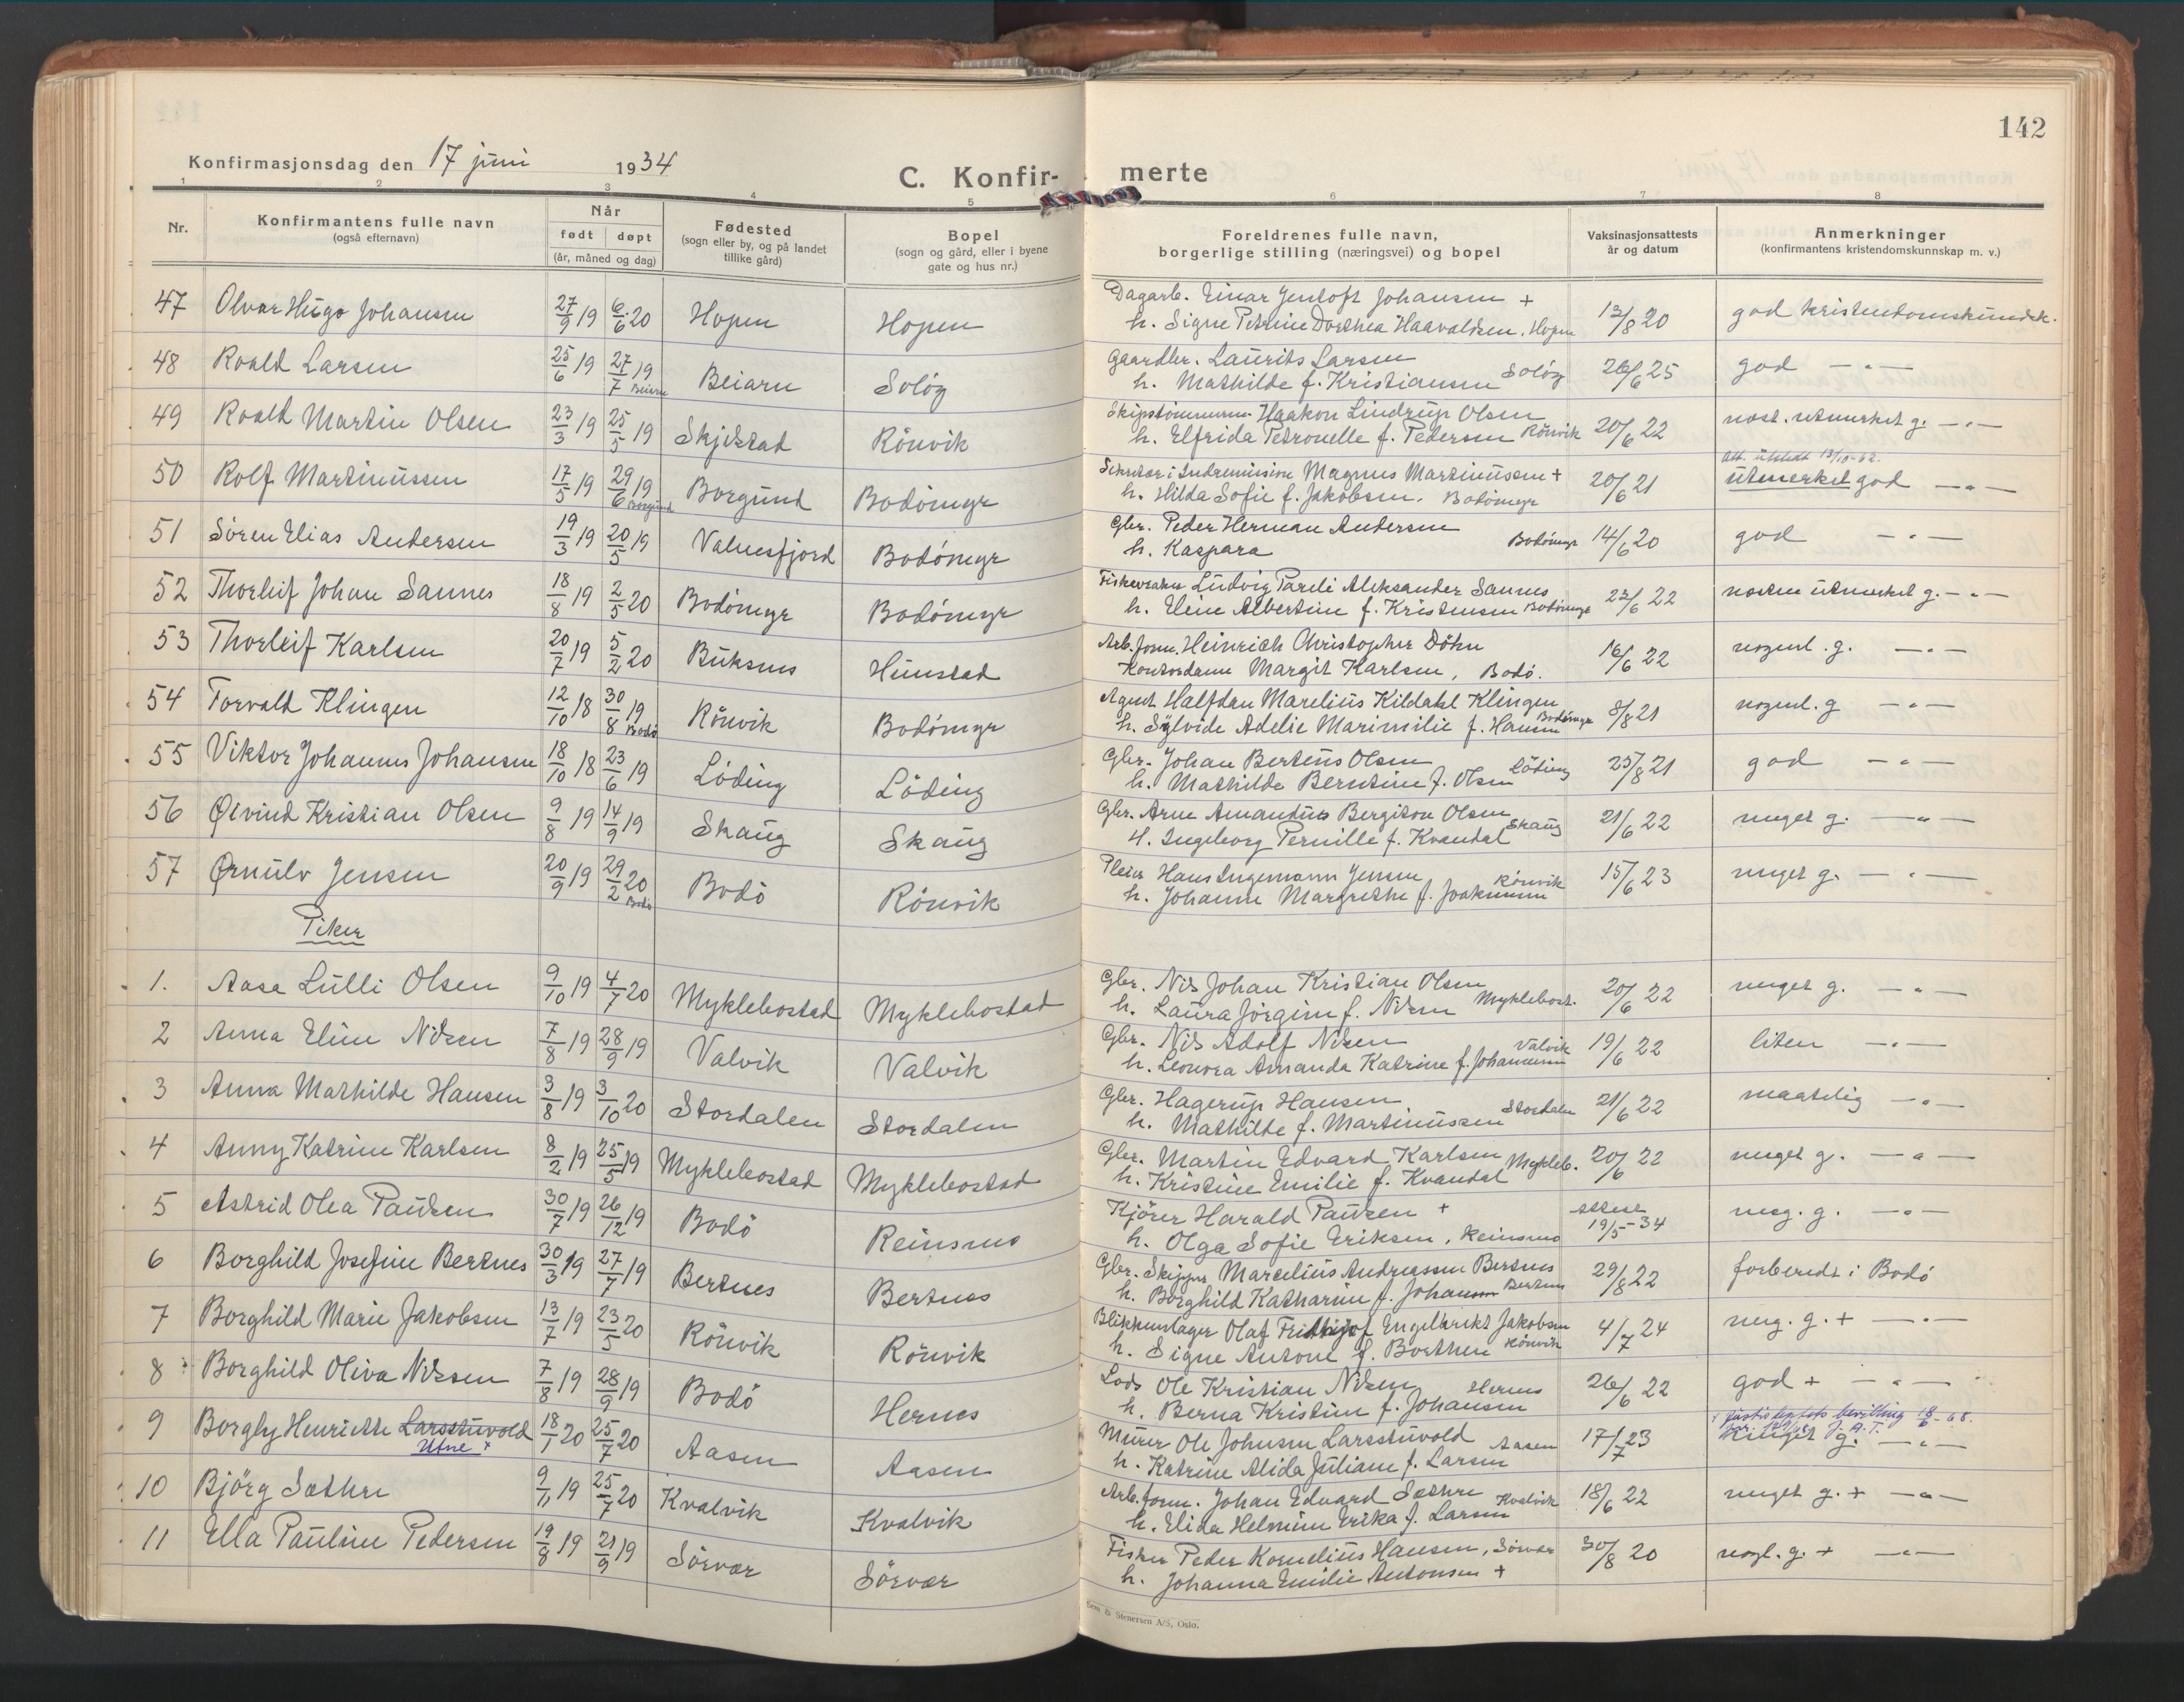 142
Konfirmasjonsdag den 17 juni 1934
C. Konfir- merte
1 2 3 4 5 6 7 8
Nr.
Konfirmantens fulle navn
(også efternavn)
Når
født døpt
(år, måned og dag)
Fødested
(sogn eller by, og på landet
tillike gård)
Bopel
(sogn og gård, eller i byene
gate og hus nr.)
Foreldrenes fulle navn,
borgerlige stilling (næringsvei) og bopel
Vaksinasjonsattests
år og datum
Anmerkninger
(konfirmantens kristendomskunnskap m. v.)
47 Olvar Hugo Johansen 27/9 19 6/6 20 Hopen Hopen
Dagarb. Einar Jentoft Johansen +
h. Signe Petrine Dorthea Haavaldsen. Hopen 13/8 20 god kristendomskundsk.
48 Roald Larsen 25/6 19 27/7 19 Beiarn Beiarn Soløy
Gaardbr. Laurits Larsen
h. Mathilde f. Kristiansen Soløy 26/6 25 god — " —
49 Roald Martin Olsen 23/3 19 25/5 19 Skjerstad Rönvik
Skipstømmerm. Haakon Lindrup Olsen
h. Elfrida Petronelle f. Pedersen Rönvik 20/6 22 nest. utmerket g. — " —
50 Rolf Martinussen 17/5 19 29/6 19 Borgund Borgund Bodömyr
Sekretær i Indremisjon Magnus Martinussen +
h. Hilda Sofie f. Jakobsen. Bodömyr 20/6 21 utmerket god — " —
att. utstedt 13/10-62.
51 Sören Elias Andersen 19/3 19 20/5 19 Valnesfjord Bodömyr
Gbr. Peder Herman Andersen
h. Kaspara Bodömyr 14/6 20 god — " —
52 Thorleif Johan Sannes 18/8 19 2/5 20 Bodömyr Bodömyr
Fiskevraker Ludvig Pareli Aleksander Sannes
h. Eline Albertine f. Kristensen Bodömyr 22/6 22 nesten utmerket g. — " —
53 Thorleif Karlsen 20/7 19 5/2 20 Buksnes Hunstad
Arb. form. Heinrich Christopher Döhn
Kontordame Margit Karlsen, Bodö. 16/6 22 nogenl. g. — " —
54 Torvald Klingen 12/10 18 30/8 19 Bodö Rönvik Bodömyr
Agent Halfdan Marelius Kildahl Klingen
h. Sylvide Adelie Marimilie f. Hansen Bodömyr 8/8 21 nogenl. g — " —
55 Viktor Johannes Johansen 18/10 18 23/6 19 Löding Löding
Gbr. Johan Berteus Olsen
h. Mathilde Berntine f. Olsen Löding 25/8 21 god — " —
56 Øivind Kristian Olsen 9/8 19 14/9 19 Skaug Skaug
Gbr. Arne Amandus Bergiton Olsen
h. Ingeborg Pernille f. Kvandal Skaug 21/6 22 meget g. — " —
57 Ørnulv Jensen 20/9 19 29/2 20 Bodö Bodö Rönvik
Pleier Hans Ingemann Jensen
h. Johanne Margrethe f. Joakimsen Rönvik 15/6 23 meget g. — " —
Piker
1. Aasa Lulli Olsen 9/10 19 4/7 20 Myklebostad Myklebostad
Gbr. Nils Johan Kristian Olsen
h. Laura Jörgine f. Nilsen Myklebost. 20/6 22 meget g. — " —
2 Anna Eline Nilsen 7/8 19 28/9 19 Valvik Valvik
Gbr. Nils Adolf Nilsen
h. Leonora Amanda Katrine f. Johannesen Valvik 19/6 22 liten — " —
3 Anna Mathilde Hansen 3/8 19 3/10 20 Stordalen Stordalen
Gbr. Hagerup Hansen
h. Mathilde f. Martinussen Stordalen 21/6 22 maatelig — " —
4 Anny Katrine Karlsen 8/2 19 25/5 19 Myklebostad Myklebostad
Gbr. Martin Edvard Karlsen
h. Kristine Emilie f. Kvandal Mykleb. 20/6 22 meget g. — " —
5 Astrid Olea Paulsen 30/7 19 26/12 19 Bodö Reinsmo
Kjörer Harald Paulsen +
h. Olga Sofie Eriksen, Reinsmo attest 19/5-34 meg. g. — " —
6 Borghild Josefine Bertnes 30/3 19 27/7 19 Bertnes Bertnes
Gbr. Skipper Marselius Andreassen Bertnes
h. Borghild Katharine f. Johansen Bertnes 29/8 22 forberedt i Bodö
7 Borghild Marie Jakobsen 13/7 19 23/5 20 Rönvik Rönvik
Blikkenslager Olaf Fridthjof Engelbrikt Jakobsen
h. Signe Antone f. Borthen Rönvik 4/7 24 meg. g. + — " —
8 Borghild Oliva Nilsen 7/8 19 28/9 19 Bodö Hernes
Lods Ole Kristian Nilsen
h. Berna Kristine f. Johansen Hernes 26/6 22 god + — " —
9 Borghy Henriette Larsstuvold 18/1 20 25/7 20 Aasen Aasen
Utne +
Murer Ole Johnsen Larsstuvold
h. Katrine Alida Juliane f. Larsen Aasen 17/7 23 meget g. — " —
+ justisdeptets bevilling 18/6-68. J.A.T.
10 Björg Sæthre 9/11 19 25/7 20 Kvalvik Kvalvik
Arb. form. Johan Edvard Sæthre
h. Elida Helmine Erika f. Larsen Kvalvik 18/6 22 meget g. + — " —
11 Ella Pauline Pedersen 19/8 19 21/9 19 Sörvær Sörvær
Fisker Peder Kornelius Hansen, Sörvær
h. Johanna Emilie Antonsen + 30/8 20 nogl. g. + — " —
Sem & Stenersen A/S, Oslo.